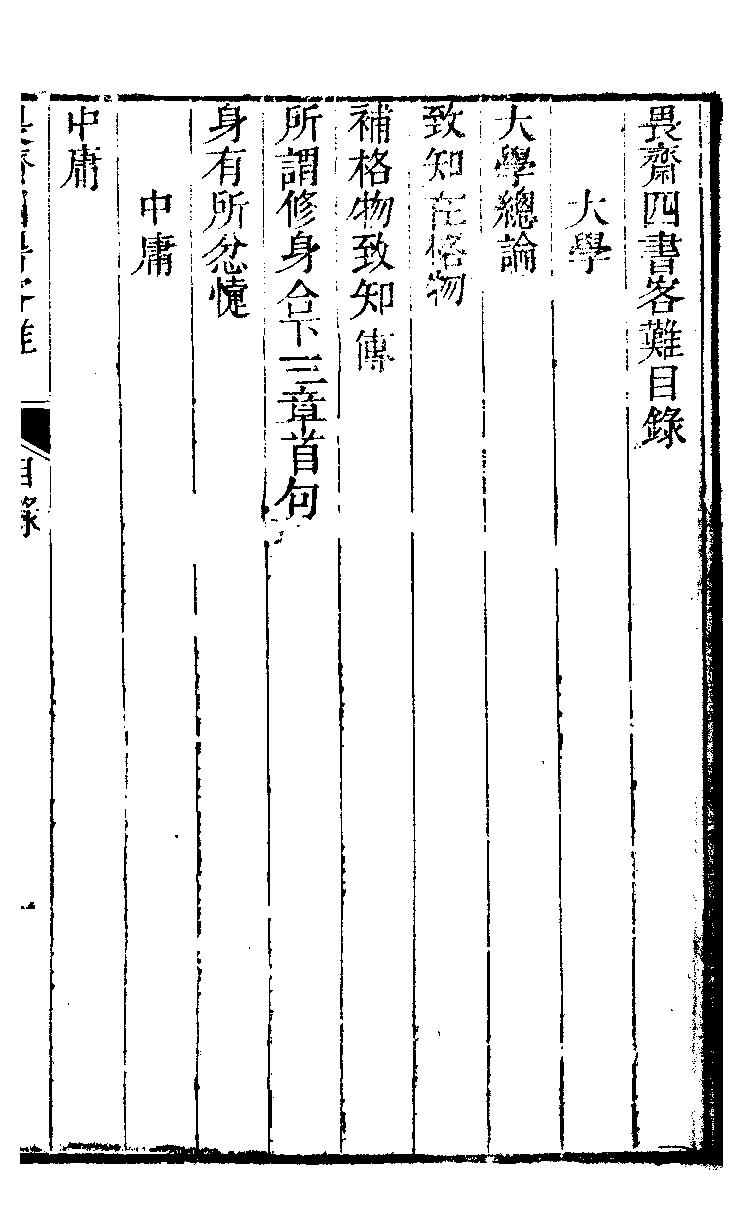 畏齋四書客難目錄
大學
大學總論
致知在格物
補格物致知傳
所謂修身合下三章首句
身有所忿懥
中庸
中庸
畏齋四書客難
目錄
一